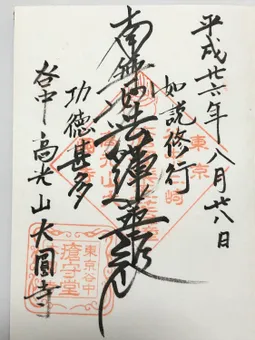 平成廿六年八月廿八日
如説修行
南無妙法蓮華経
功徳甚多
谷中 高光山 大圓寺
東京
東京谷中
瘡守堂